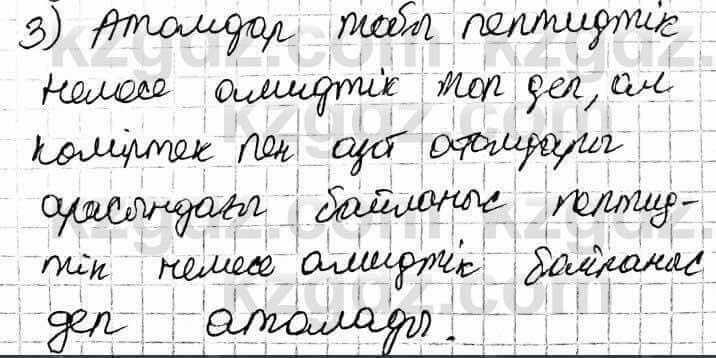 3) Атомдар тобы пептидтік
немесе амидтік топ деп, ал
көміртек пен азот атомдары
арасындағы байланыс пептид-
тік немесе амидтік байланыс
деп аталады.